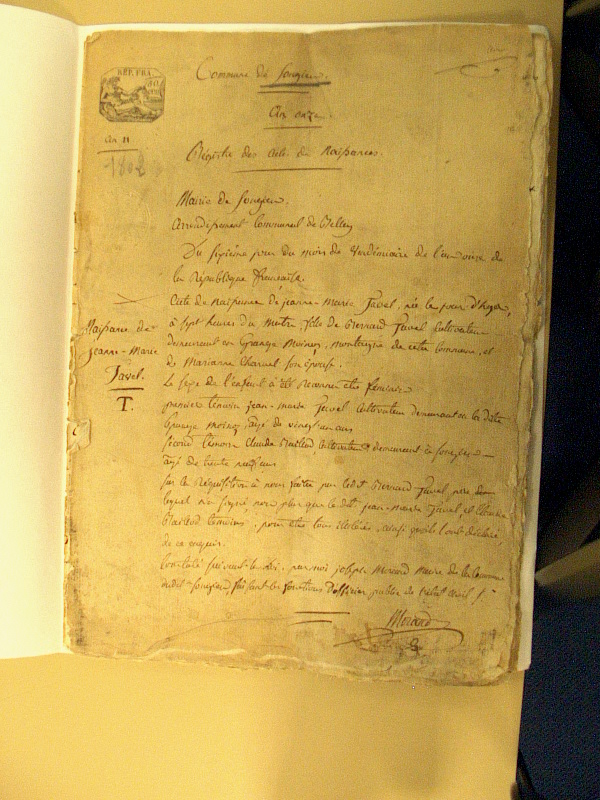 REP. FRA.
Commune de Songieu.
An onze.
an 11
1802
Registre des actes de Naissances.
Mairie de Songieu.
Arrondissement Communal de Belley
Du septième jour du mois de Vendémiaire de l'an onze de
la République française.
Acte de Naissance de jeanne-Marie Javel, née le jour d'hyer,
à sept heures du matin fille de Bernard Javel Cultivateur
demeurant en Grange Moinoz, montagne de cette Commune, et
de Marianne Charvel son épouse.
Naissance de
Jeanne-Marie
Javel.
T.
Le sexe de l'enfant a été reconnu être féminin
premier témoin jean-marie Javel Cultivateur demeurant en la dite
Grange moinoz âgé de vingt un ans
second témoin Claude Cultivateur demeurant à Songieu
âgé de trente neuf ans
sur la Réquisition à nous faite par ledit Bernard Javel père
lequel n'a signé, non plus que le dit jean-marie Javel et Claude
témoins, pour être tous illétérés, ainsi qu'ils l'ont déclaré,
de ce enquis.
Constaté suivant la loi, par moi joseph Morand Maire de la Commune
dudit Songieu, faisant les fonctions d'officier public de l'état civil
Morand